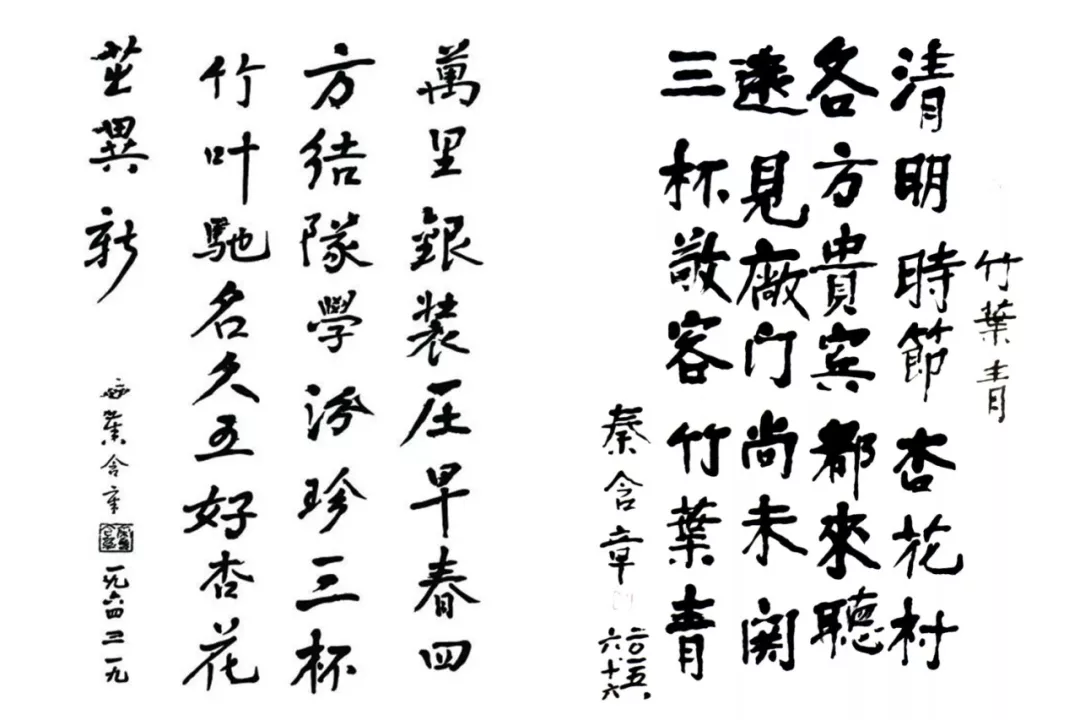 竹葉青
清明時節杏花村
各方貴宾都來聽
遠見廠門尚未関
三杯敬客竹葉青
秦含章
二〇一五、
六、十六
萬里銀装压早春四
方结隊學汾珍三杯
竹叶馳名久五好杏花
茁異新
含章
一九六四 三 一九